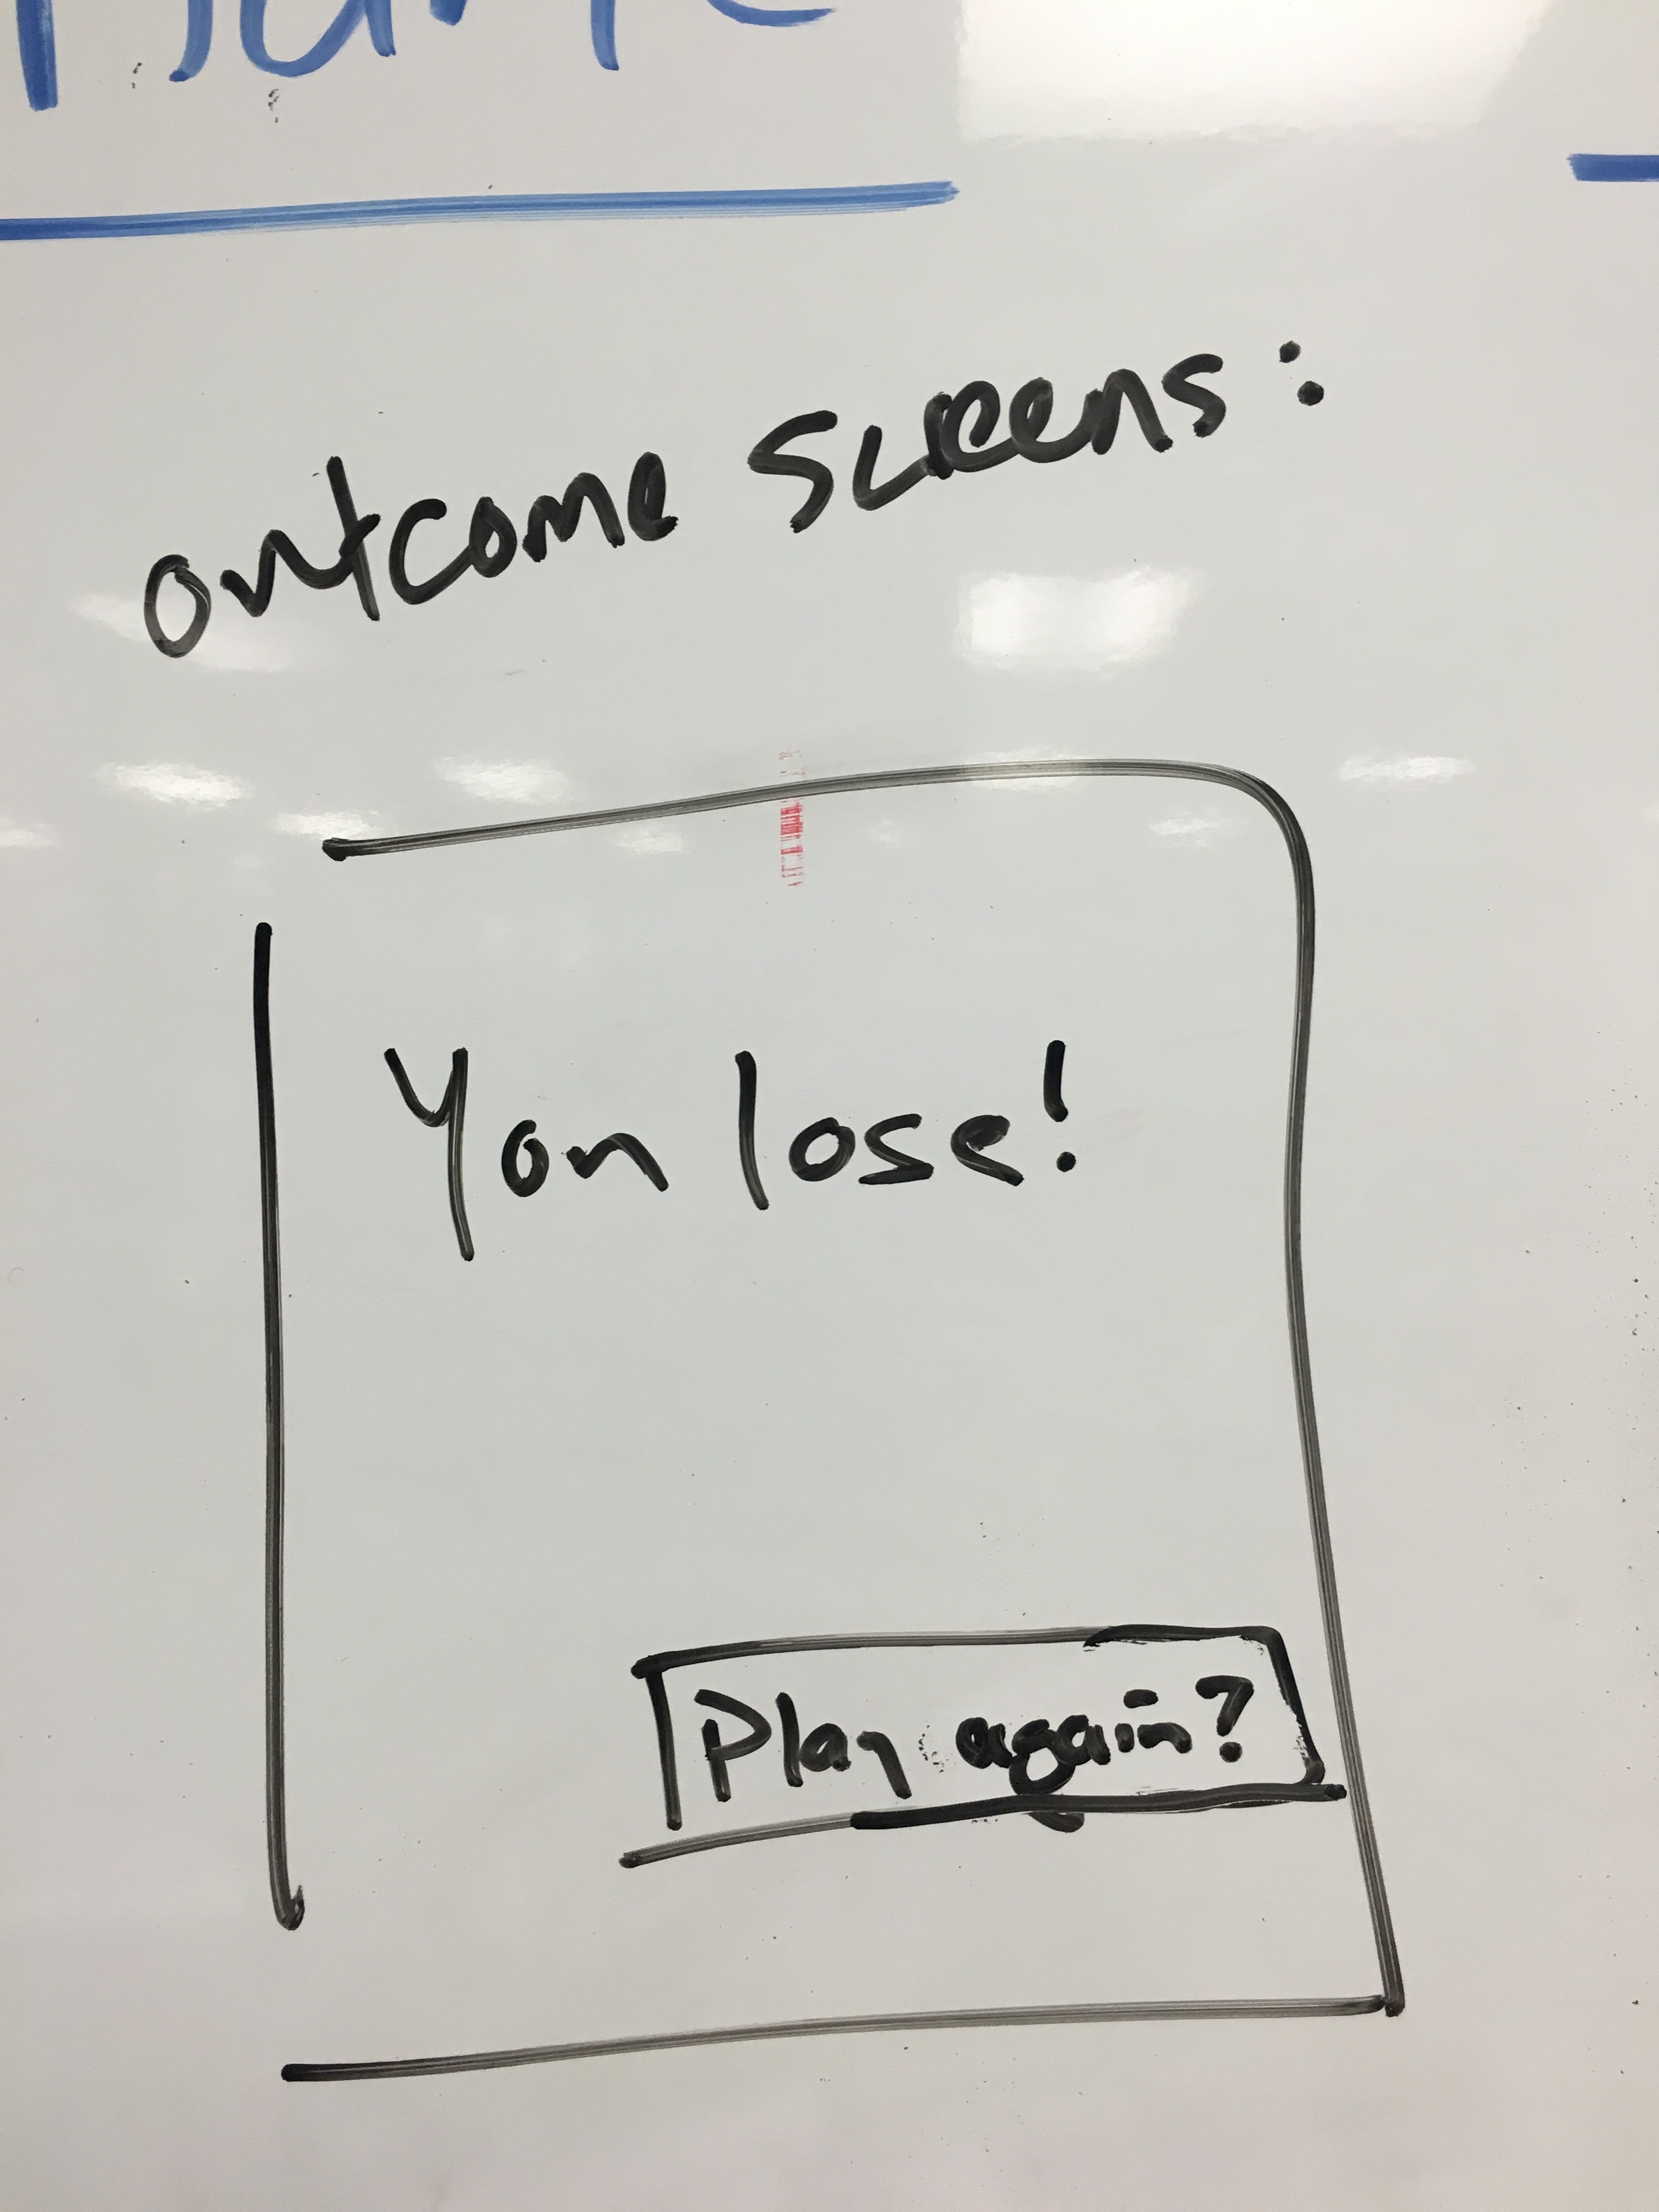 outcome screens:
You lose!
Play again?